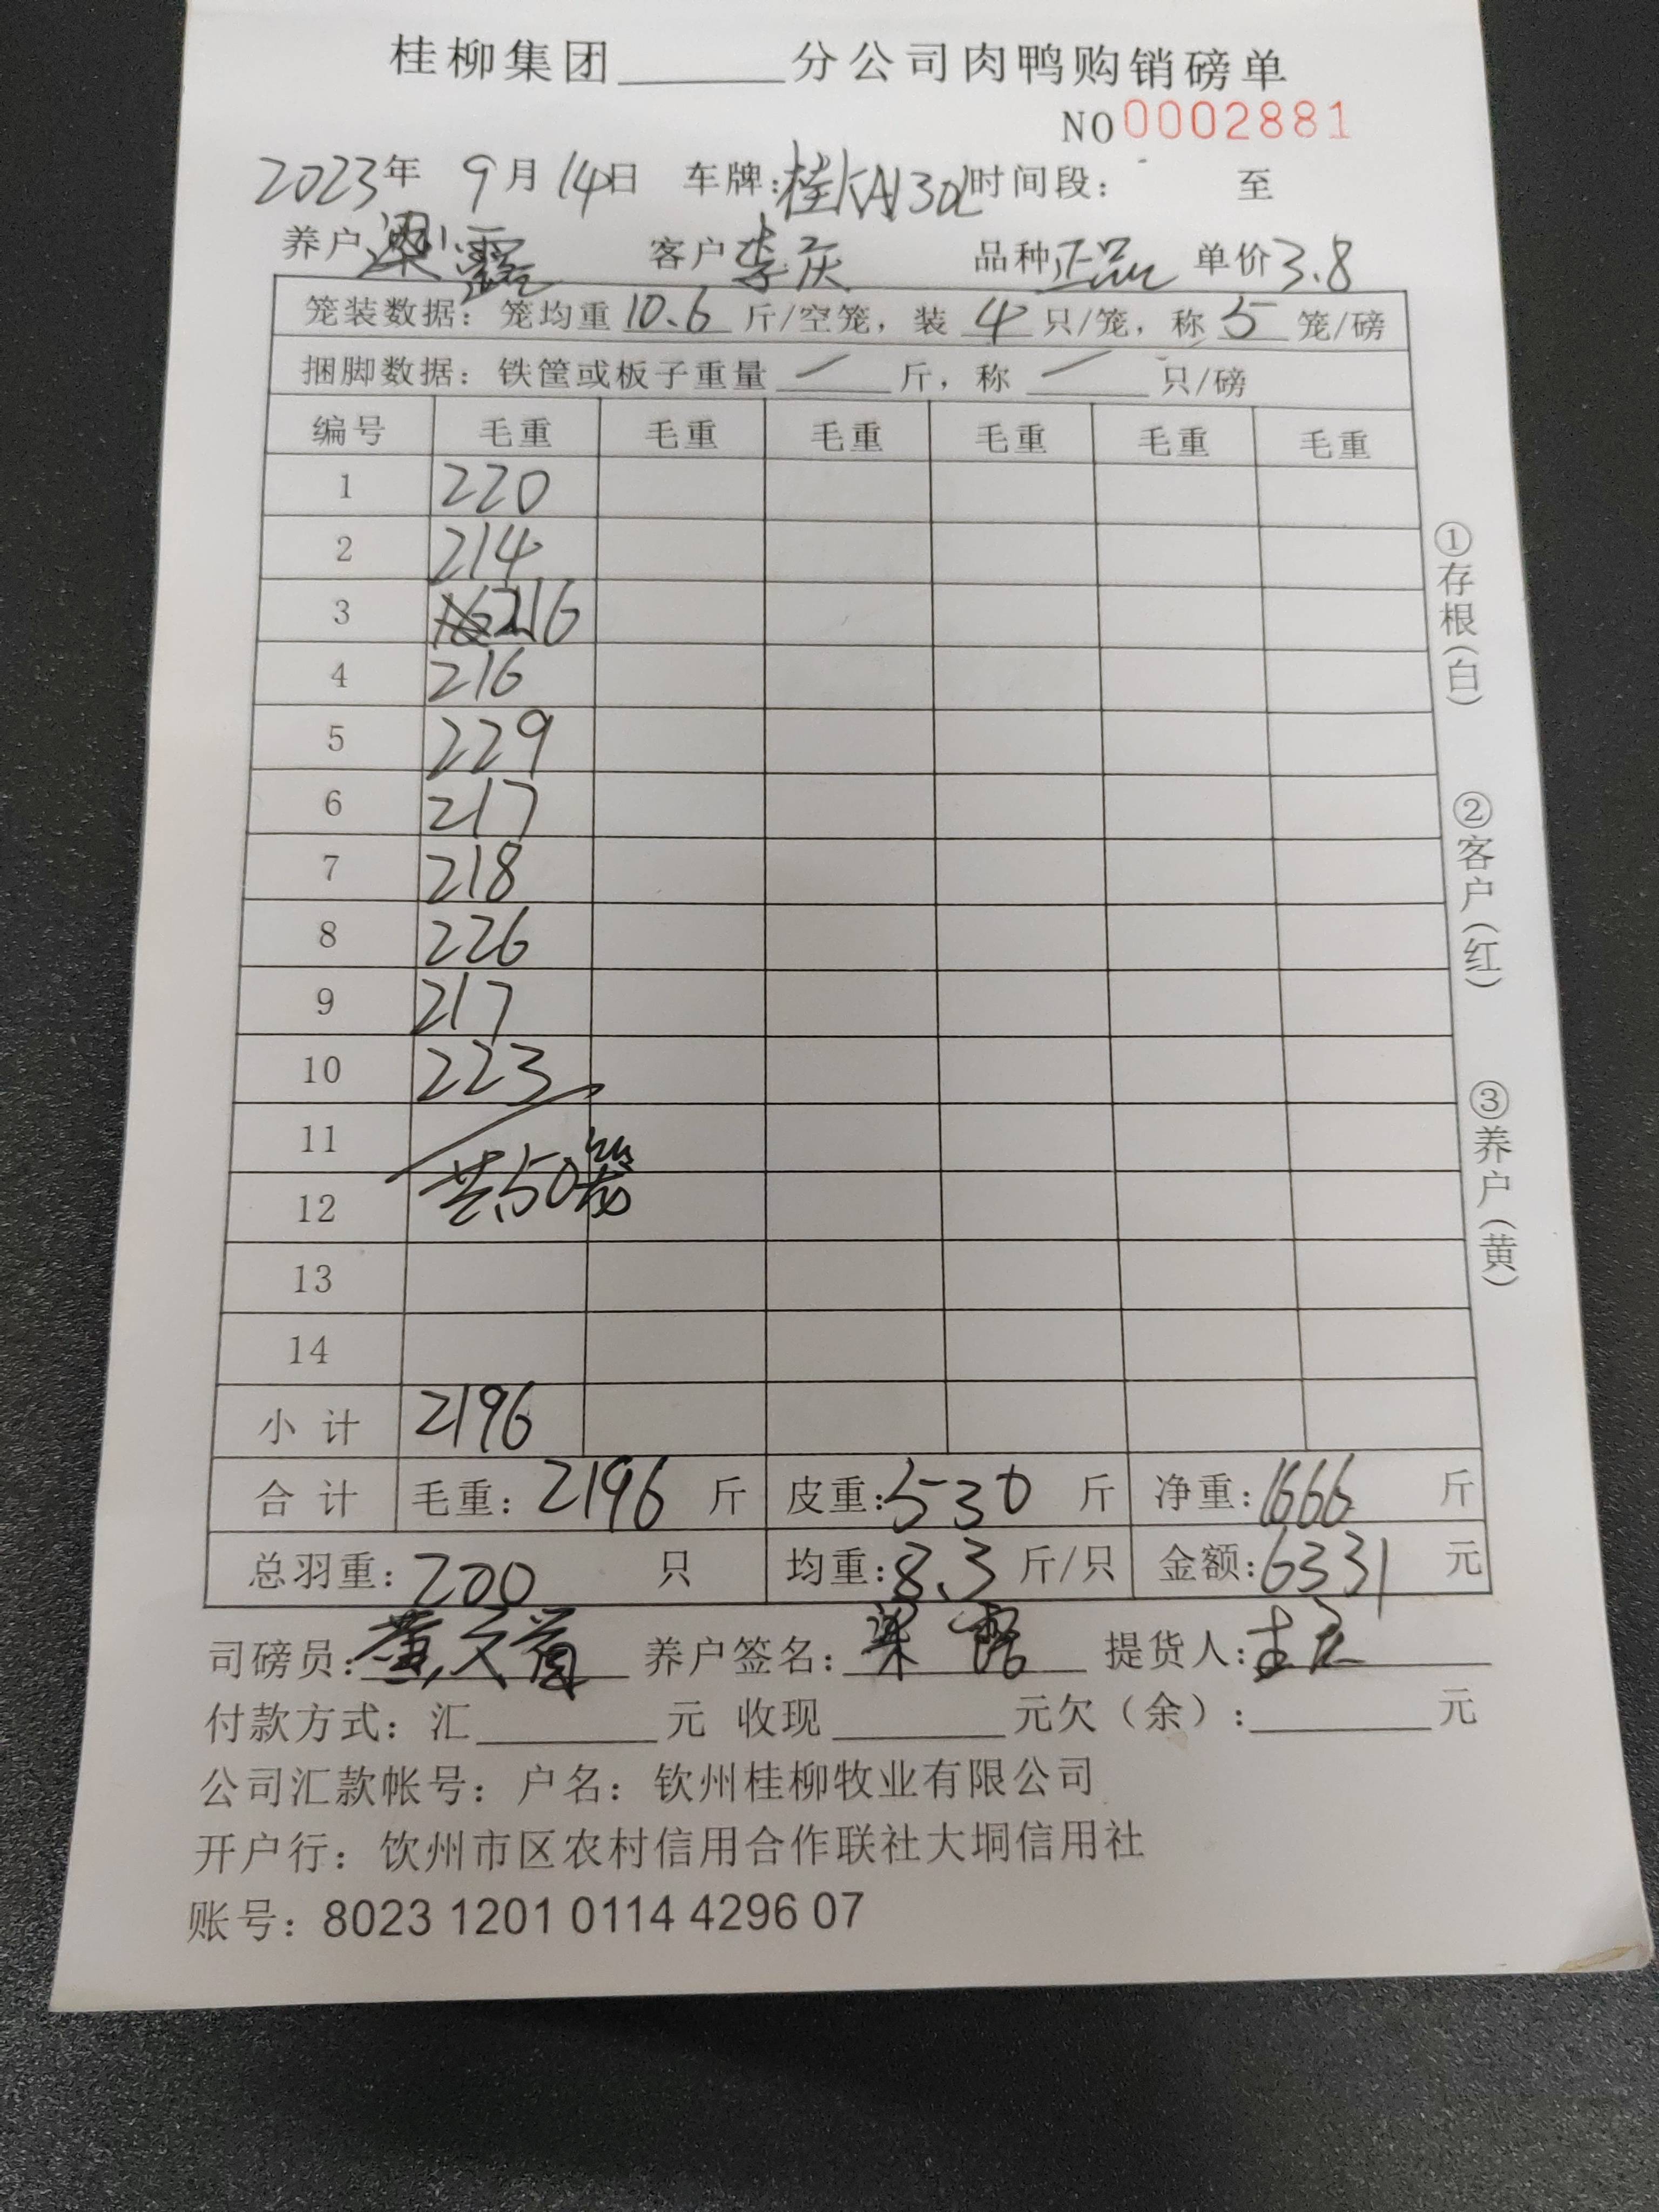 桂柳集团______分公司肉鸭购销磅单
NO0002881
2023年 9月14日 车牌: 时间段: 至
养户 梁小露 客户 李庆 品种 正品 单价3.8
笼装数据: 笼均重 10.6 斤/空笼, 装 4 只/笼, 称 5 笼/磅
捆脚数据: 铁筐或板子重量 / 斤, 称 / 只/磅
编号 毛重 毛重 毛重 毛重 毛重 毛重
1 220
2 214
3 216
4 216
5 229
6 217
7 218
8 226
9 217
10 223
11
12 共50笼
13
14
小计 2196
合计 毛重: 2196 斤 皮重: 530 斤 净重: 1666 斤
总羽重: 200 只 均重: 8.3 斤/只 金额: 6331 元
司磅员: 黄文 养户签名: 梁露 提货人: 李庆
付款方式: 汇______元 收现______元欠(余):______元
公司汇款帐号: 户名: 钦州桂柳牧业有限公司
开户行: 饮州市区农村信用合作联社大垌信用社
账号: 8023 1201 0114 4296 07
①存根(白)
②客户(红)
③养户(黄)